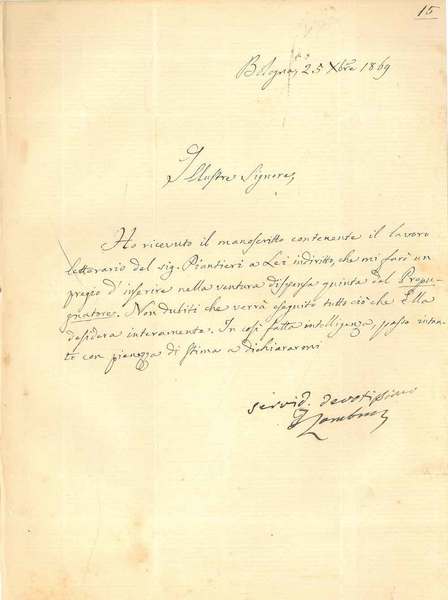 15
Bologna, 25 Xbre 1869
Illustre Signore,
Ho ricevuto il manoscritto contenente il lavoro
letterario del sig. Piantieri a Lei indiritto, che mi farò un
pregio d'inserire nella ventura dispensa quinta del Propu-
gnatore. Non dubiti che verrà eseguito tutto ciò che Ella
desidera interamente. In così fatta intelligenza, passo intan-
to con pienezza di stima a dichiararmi
servid. devotissimo
Zambrini